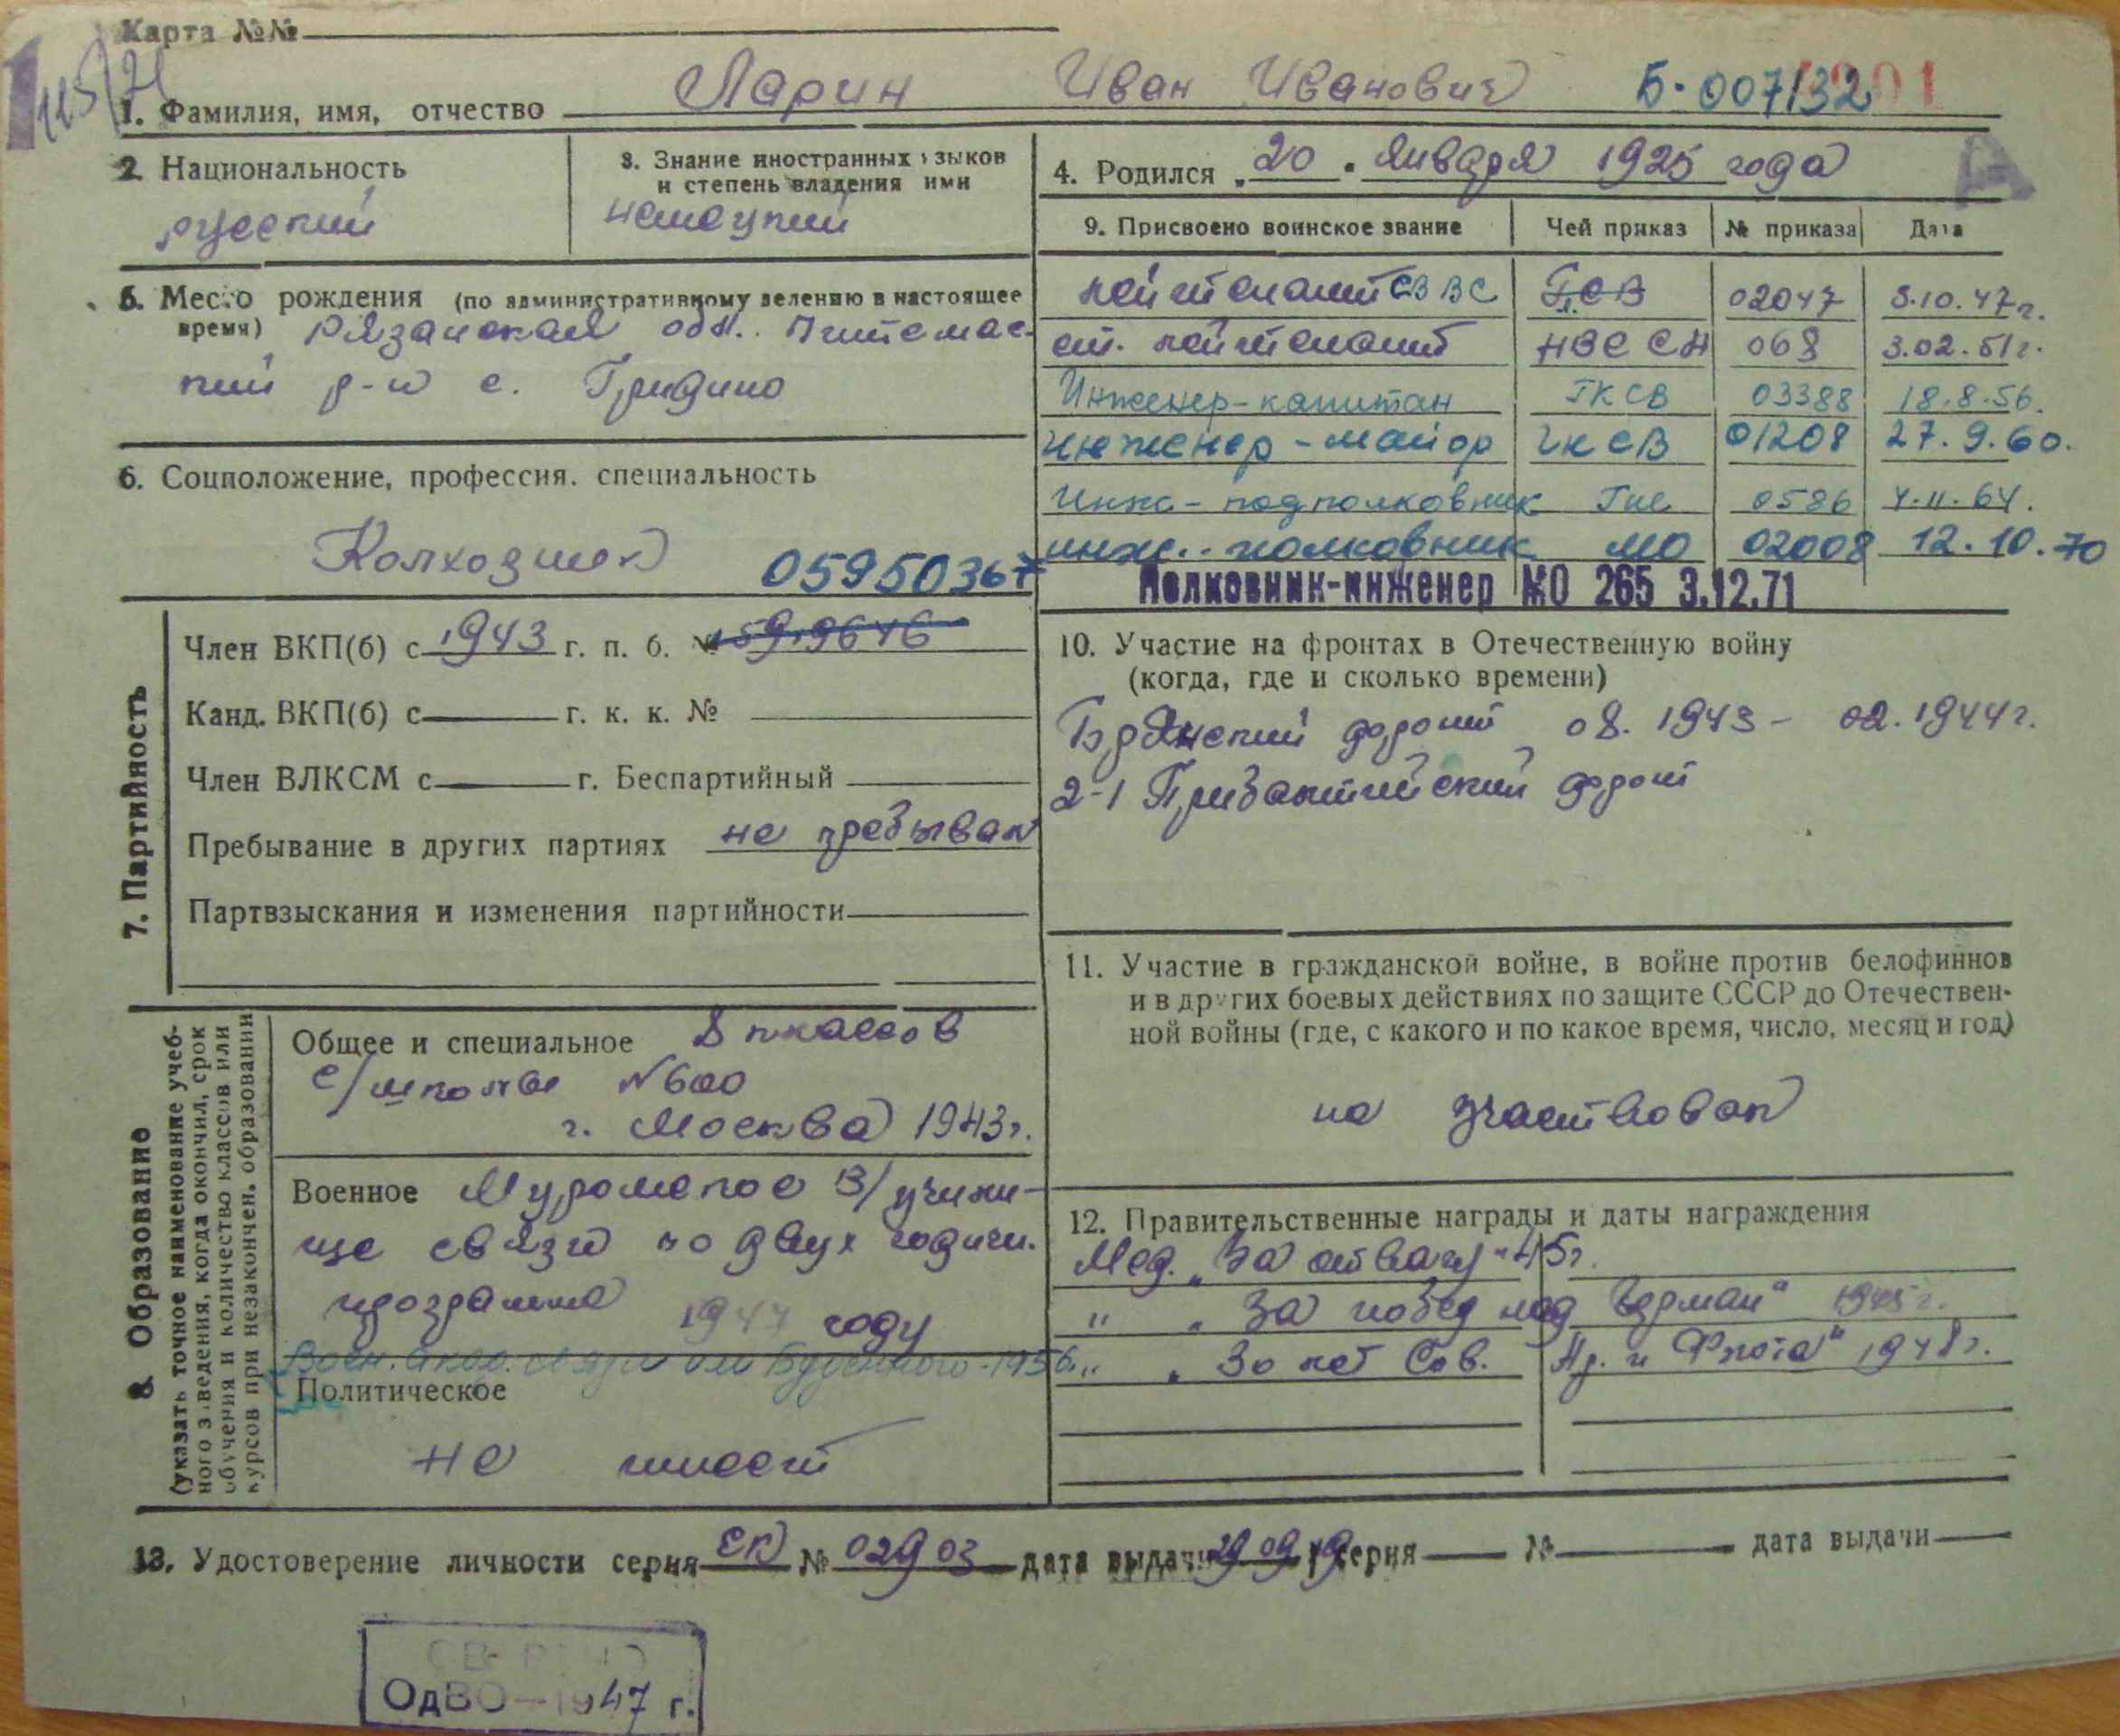 Карта №№
1. Фамилия, имя, отчество Ларин Иван Иванович Б-007132
2. Национальность
русский
3. Знание иностранных языков
и степень владения ими
немецкий
4. Родился „20" января 1925 года
5. Место рождения (по административному делению в настоящее
время) Рязанская обл. Пителис-
кий р-н с. Гридино
6. Социоложение, профессия. специальность
Колхозник
05950367
7. Партийность
Член ВКП(б) с 1943 г. п. б. №
Канд. ВКП(б) с г. к. к. №
Член ВЛКСМ с г. Беспартийный
Пребывание в других партиях не пребывал
Партвзыскания и изменения партийности
8. Образование
(указать точное наименование учеб-
ного заведения, когда окончил, срок
обучения и количество классов или
курсов при незакончен. образовании
Общее и специальное 8 классов
с/школы №600
г. Москва 1943г.
Военное Муромское в/учили-
ще связи по двух годичн.
программа 1947 году
Воен. акад. связи им Буденного-1956
Политическое
не имеет
9. Присвоено воинское звание Чей приказ № приказа Дата
лейтенант СВВС ГСВ 02047 3.10.47г.
ст. лейтенант НВССН 068 3.02.51г.
Инженер-капитан ГКСВ 03388 18.8.56.
инженер-майор ГКСВ 01208 27.9.60.
Инж-подполковник 0586 4.11.64.
инж.-полковник МО 02008 12.10.70
Полковник-инженер МО 265 3.12.71
10. Участие на фронтах в Отечественную войну
(когда, где и сколько времени)
Брянский фронт 08.1943 - 02.1944г.
2-й Прибалтийский фронт
11. Участие в гражданской войне, в войне против белофиннов
и в других боевых действиях по защите СССР до Отечествен-
ной войны (где, с какого и по какое время, число, месяц и год)
не участвовал
12. Правительственные награды и даты награждения
Мед. „За отвагу" 45г.
" „За побед над Герман" 1945г.
" „30 лет Сов. Ар. и Флота" 1948г.
13. Удостоверение личности серия ЕК № 02903 дата выдачи серия № дата выдачи
СВЕРЕНО
ОдВО—1947 г.